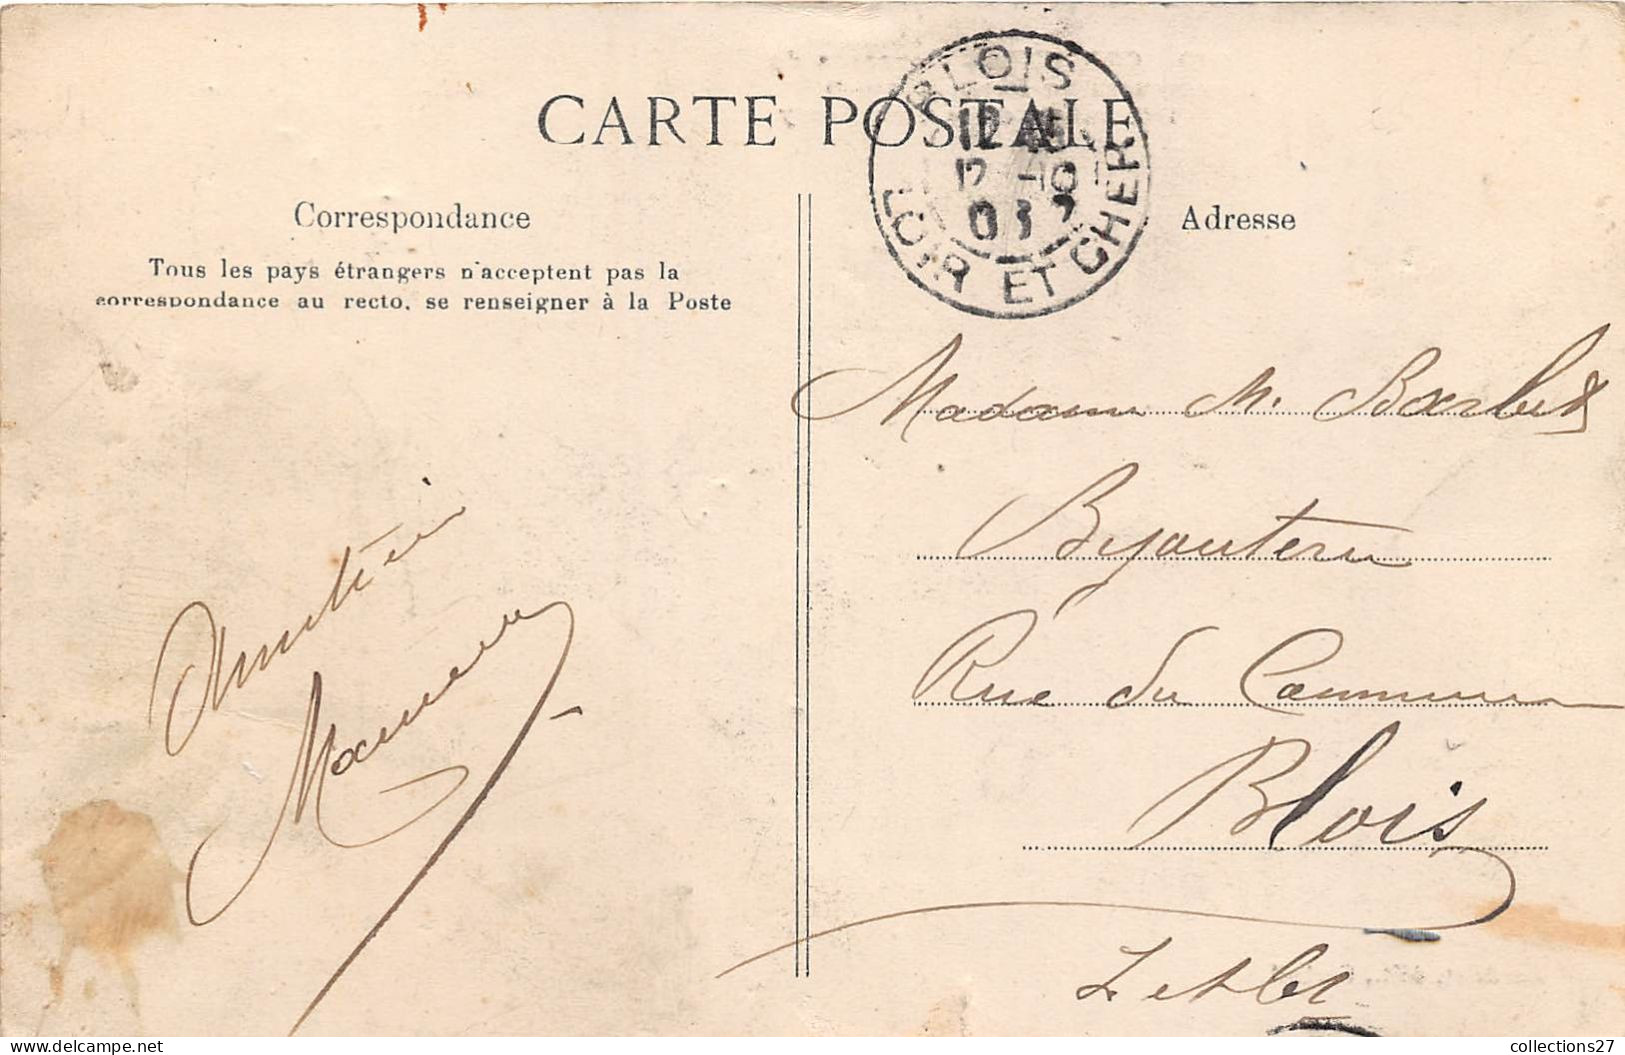 CARTE POSTALE
BLOIS
LOIR ET CHER
Correspondance
Tous les pays étrangers n'acceptent pas la
correspondance au recto, se renseigner à la Poste
Adresse
Madame M. Barbet
Bijouterie
Rue du Commerce
Blois
collections27